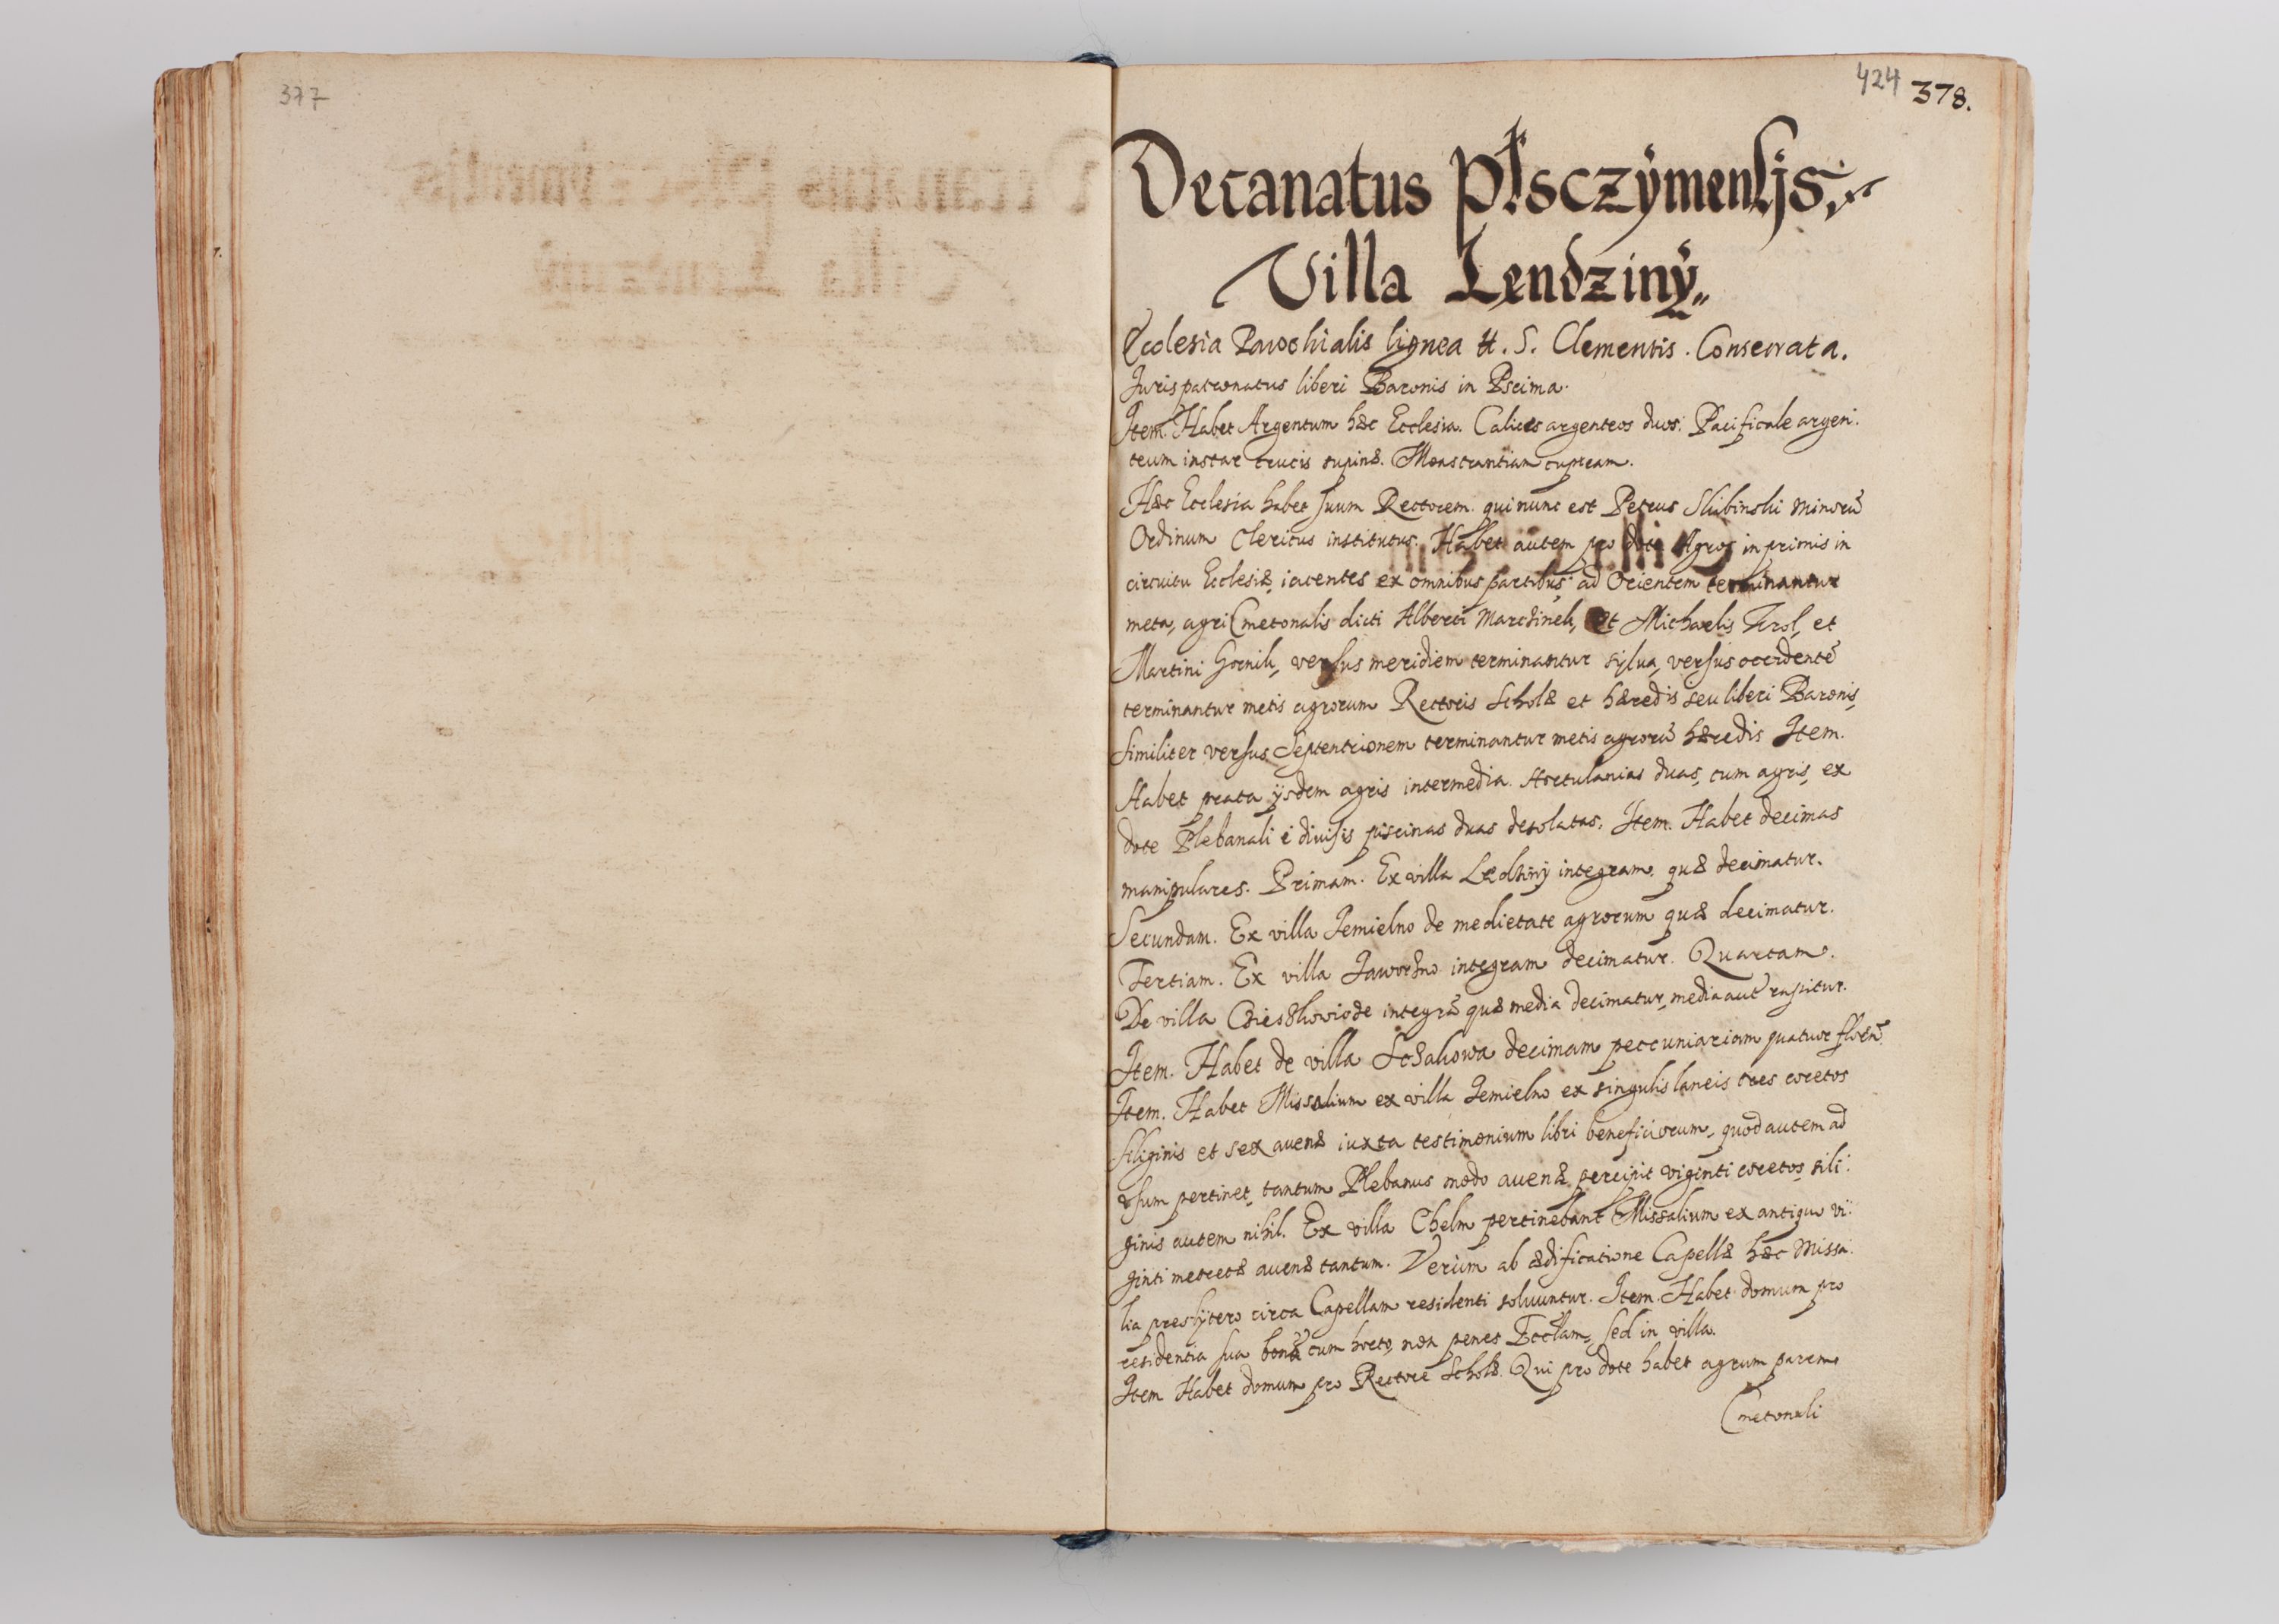 377
424 378.
Decanatus Plsczÿmensjs
Villa Lendzinÿ
Ecclesia Parochialis lignea tt. S. Clementis. Consecrata.
Juris patronatus liberi Baronis in Pscima.
Item. Habet Argentum hæc Ecclesia. Calices argenteos duos: Pacificale argen:
teum instar crucis supinæ. Monstrantiam cupream.
Hæc Ecclesia habet suum Rectorem. qui nunc est Petrus Slubinski minorū
Ordinum Clericus institutus. Habet autem pro dote Agros in primis in
circuitu Ecclesiæ, iacentes ex omnibus partibus: ad Orientem terminantur
meta, agri Cmetonalis dicti Alberti Marczinek, et Michaelis Krol, et
Martini Gornik, versus meridiem terminantur sylua, versus occidentē
terminantur metis agrorum Rectoris Scholæ et hæredis seu liberi Baronis,
similiter versus Septentrionem terminantur metis agrorū hæredis Item.
Habet prata ÿsdem agris intermedia. Hortulanias duas, cum agris, ex
dote Plebanali e diuisis piscinas duas desolatas. Item. Habet decimas
manipulares. Primam. Ex villa Lędzinÿ integram, quæ decimatur.
Secundam. Ex villa Jemielno de medietate agrorum quæ decimatur.
Tertiam. Ex villa Jaworzno integram decimatur. Quartam.
De villa integrā quæ media decimatur, media aut̄ rapitur.
Item. Habet de villa Sczakowa decimam peccuniariam quatuor florē.
Item. Habet Missalium ex villa Jemielno ex singulis laneis tres coretos
siliginis et sex auenæ iuxta testimonium libri beneficiorum, quod autem ad
vsum pertinet, tantum Plebanus modo auenæ percipit viginti coretos, sili:
ginis autem nihil. Ex villa Chelm pertinebant Missalium ex antiquo vi:
ginti metretæ auenæ tantum. Verùm ab ædificatione Capellæ hæc Missa:
lia presbÿtero circa Capellam residenti soluuntur. Item. Habet domum pro
residentia sua bonā cum horto, non penes Eccl̄am, sed in villa.
Item Habet domum pro Rectore Scholæ. Qui pro dote habet agrum parem
Cmetonali